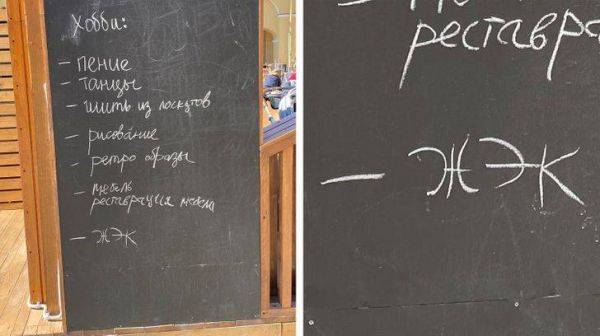 Хобби:
- пение
- танцы
- шить из лоскутов
- рисование
- ретро образы
- мебель
реставрация
- ЖЭК
реставра
- ЖЭК